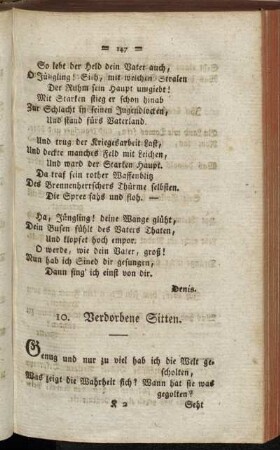 = 147 =
So lebt der Held dein Vater auch,
O Jüngling! Sieh, mit welchen Stralen
Der Ruhm sein Haupt umgiebt!
Mit Starken stieg er schon hinab
Zur Schlacht in seinen Jugendlocken,
Und stand fürs Vaterland.
Und trug der Kriegesarbeit Last,
Und deckte manches Feld mit Leichen,
Und ward der Starken Haupt.
Da traf sein rother Waffenblitz
Des Brennenherrschers Thürme selbsten.
Die Spree sahs und floh. —
Ha, Jüngling! deine Wange glüht,
Dein Busen fühlt des Vaters Thaten,
Und klopfet hoch empor.
O werde, wie dein Vater, groß!
Nun hab ich Sined dir gesungen,
Dann sing' ich einst von dir.
Denis.
10. Verdorbene Sitten.
Genug und nur zu viel hab ich die Welt ge-
scholten,
Was zeigt die Wahrheit sich? Wann hat sie was
gegolten?
K 2 Seht